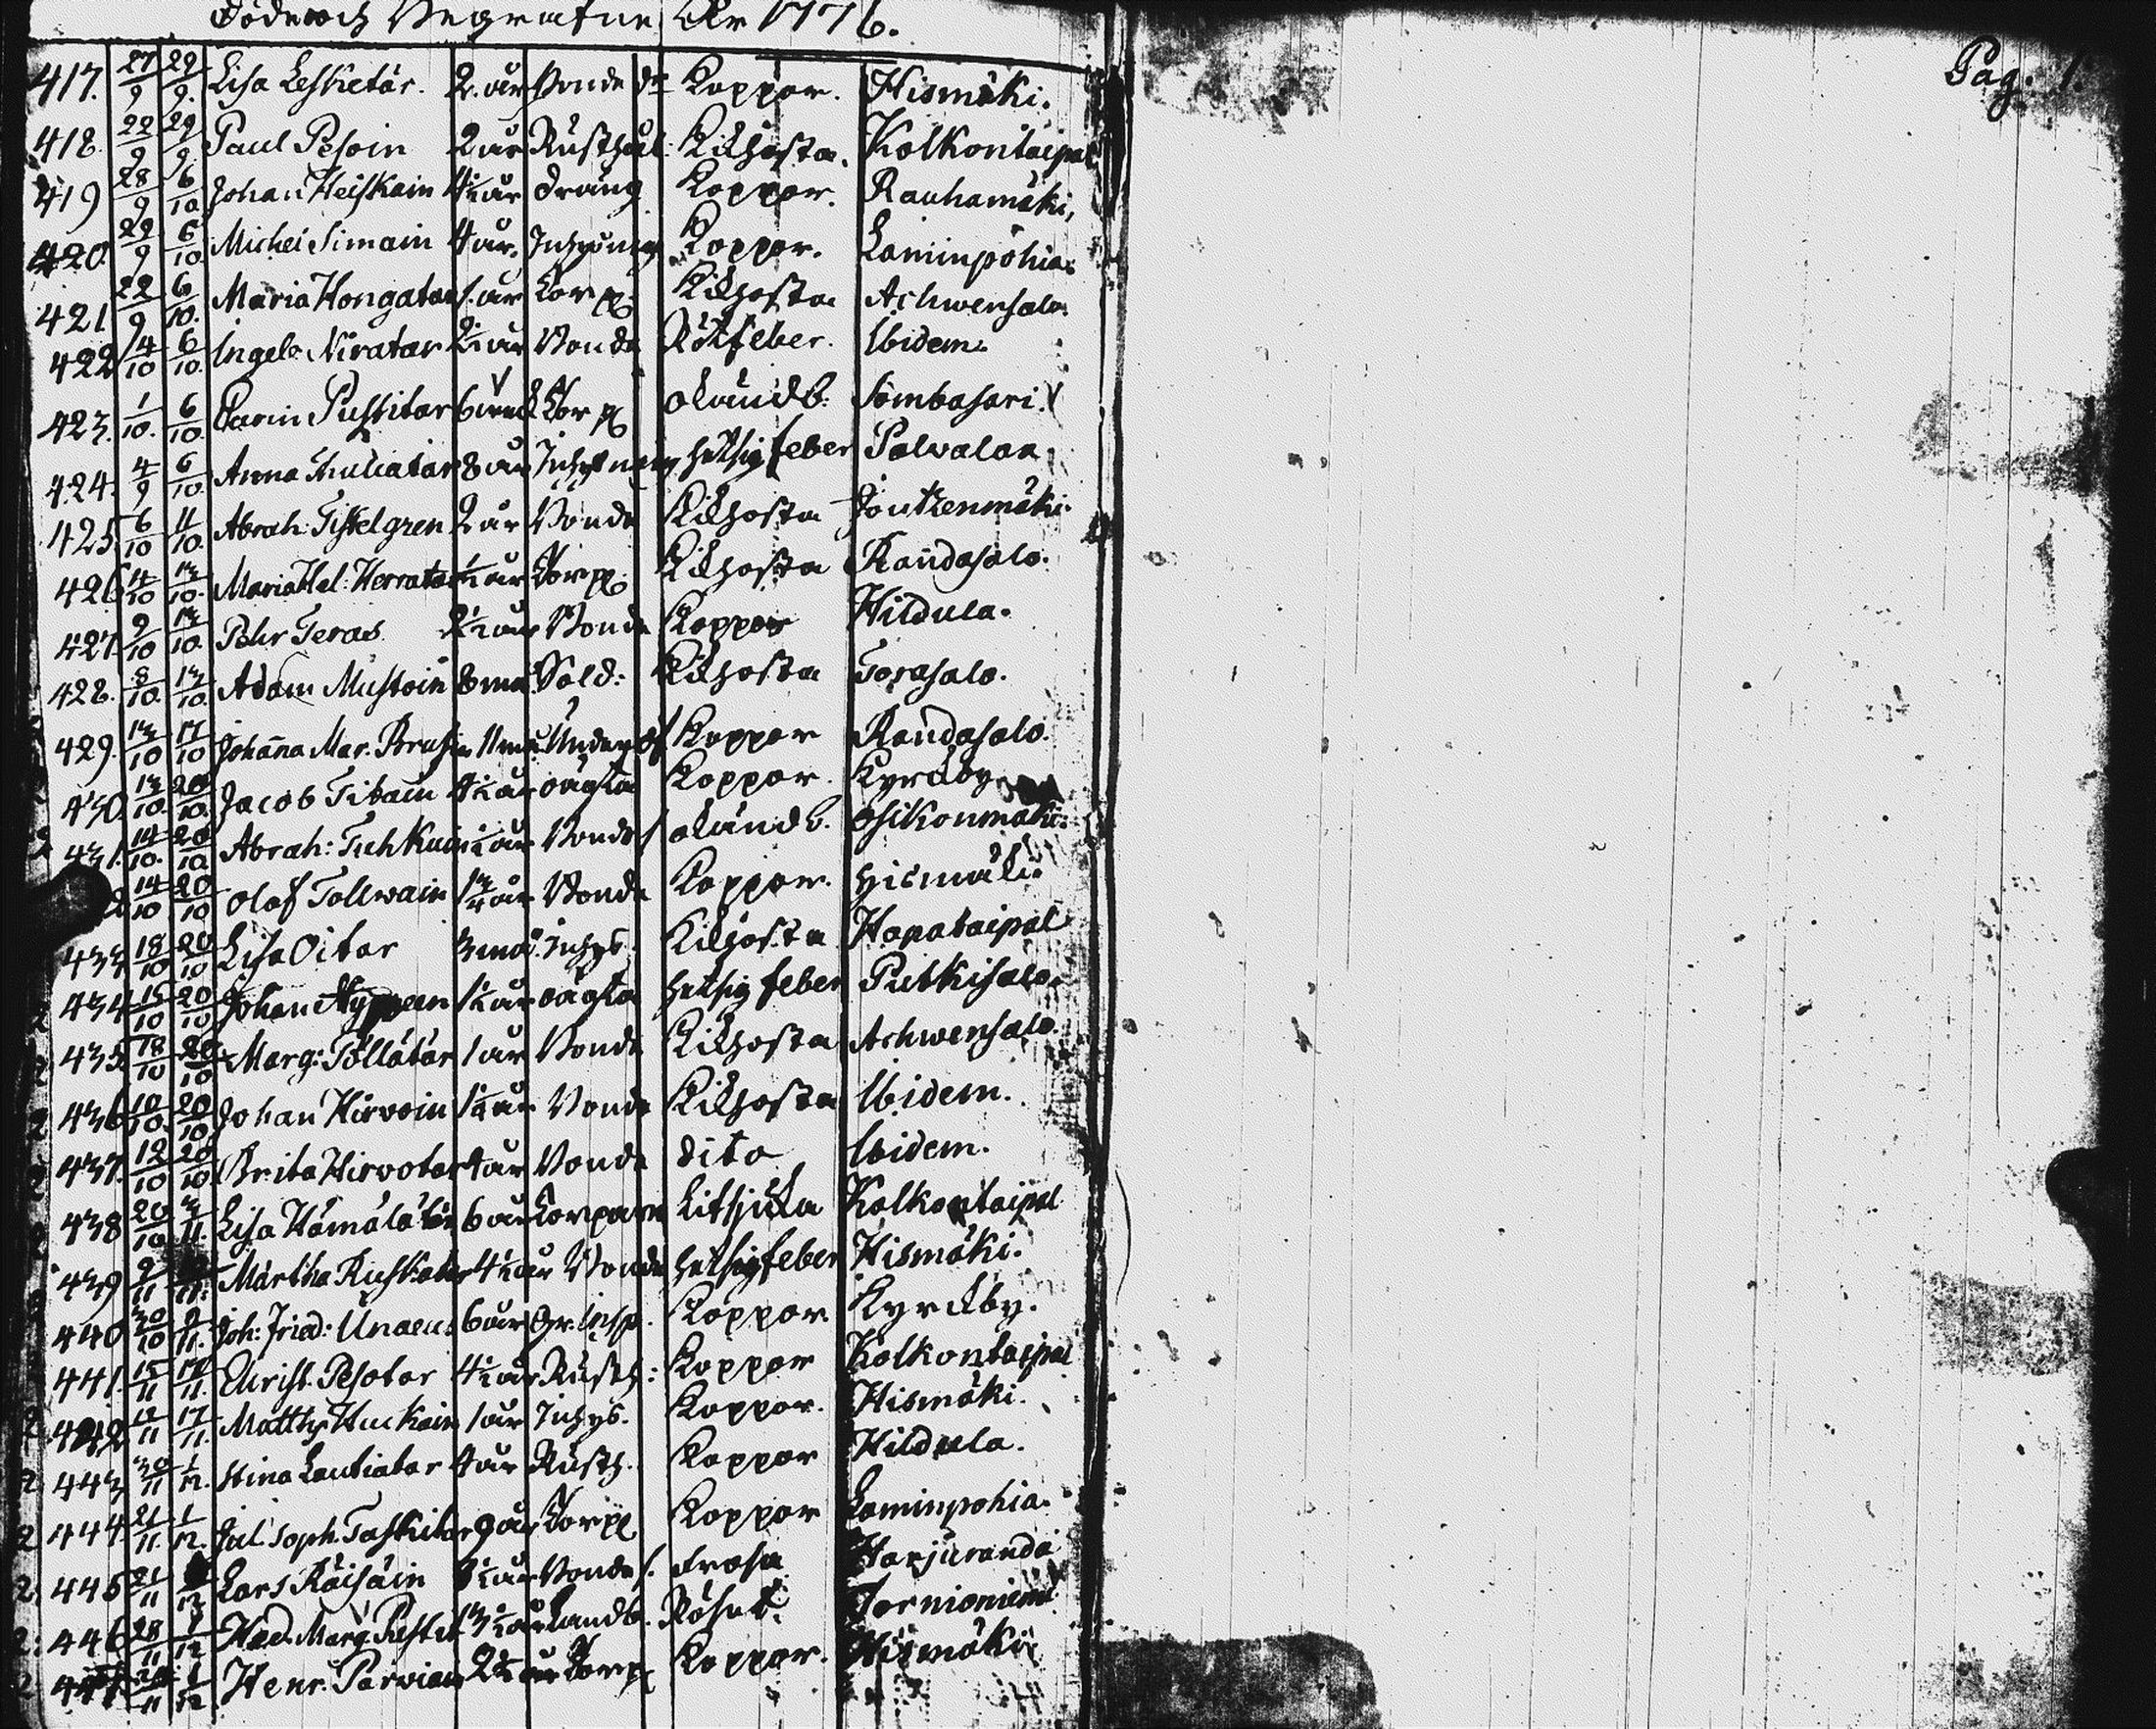 Döde och Begrafne År 1776.
Pag. 1.
417. 27/9 29/9. Lisa Leskietär. 2. år Bonde dr Koppor. Hismäki.
418. 22/9 29/9. Paul Pesoin 2 år Rusthål: Kikhosta. Kolkontaipal
419 28/9 6/10 Johan Heiskain 4½ år dräng Koppor. Rauhamäki,
420 29/9 6/10. Michel Simain 4 år. Inhysing Koppor. Laminpohia.
421 22/9 6/10. Maria Hongatar 1. år Torp. Kikhosta Achwensalo.
422 4/10 6/10. Ingeb. Niratar 2½ år Bonde Rötfeber. Ibidem.
423. 1/10. 6/10. Carin Puskitar 6 veck Torp okänd b. Sombasari.
424. 4/9 6/10. Anna Thuliatar 8 år Inhysing hetsig feber Palvalax
425 6/10 11/10. Abrah: Tistelgren 2 år Bonde Kikhosta Joutzenmäki.
426 4/10 13/10. Maria Hel: Herratar ½ år Torp. Kikhosta Randasalo.
427. 9/10 13/10. Pehr Teras 2½ år Bonde Koppor Hildula.
428. 8/10. 13/10. Adam Mustoin 8 må. Sold: Kikhosta Torasalo.
429. 13/10 17/10 Johanna Mar. 11 må Under of Koppor Randasalo.
430. 13/10. 20/10. Jacob Titain 4½ år oägta Koppor. Kyrckby
431. 14/10. 20/10. Abrah: Tuhkuin ½ år Bonde s okänd b. Osikonmäki.
14/10 20/10 Olof Tollwain 1¾ år Bonde Koppor. Hismäki.
433 18/10 20/10 Lisa Oitar 3 må. Inhys. Kikhosta Hapataipal
434 15/10 20/10 Johan Nyppeen 1½ år oägta hetsig feber Putkisalo.
435 18/10 20/10 Marg: Töllätär 1 år Bonde Kikhosta Achwensalo.
436 10/10. 20/10 Johan Hirvoin 1½ år Bonde Kikhosta Ibidem.
437. 12/10 20/10. Brita Hirvotar 4 år Bonde dito Ibidem.
438 20/10 3/11. Lisa Hämälätär 6 år Torpare Kolkontaipal
439 9/11 Märtha Ruskatar 4½ år Bonde hetsig feber Hismäki.
440 30/10 9/11. Joh: Fried: Unaeus 6 år Gr: Insp. Koppor. Kyrckby.
441. 15/11 17/11. Christ. Pesotar 4½ år Rusth: Koppor Kolkontaipal
442 12/11 17/11. Matths Huckain 1 år Inhys. Koppor. Hismäki.
443 30/11 1/12. Stina Lautiatar 4 år Rusth. Koppor Hildula.
444. 21/11. 1/12. Jul. Soph. Taskitar 9 år Torp Koppor Laminpohia.
445 21/11 Lars Räisäin 3½ år Bonde s. frosa Harjuranda
446 28/11 1/12 Hed. Marg Pistit Landb. Torniomiemi
447. 1/12 Henr. Parviain 2½ år Torp Koppor. Hismäki